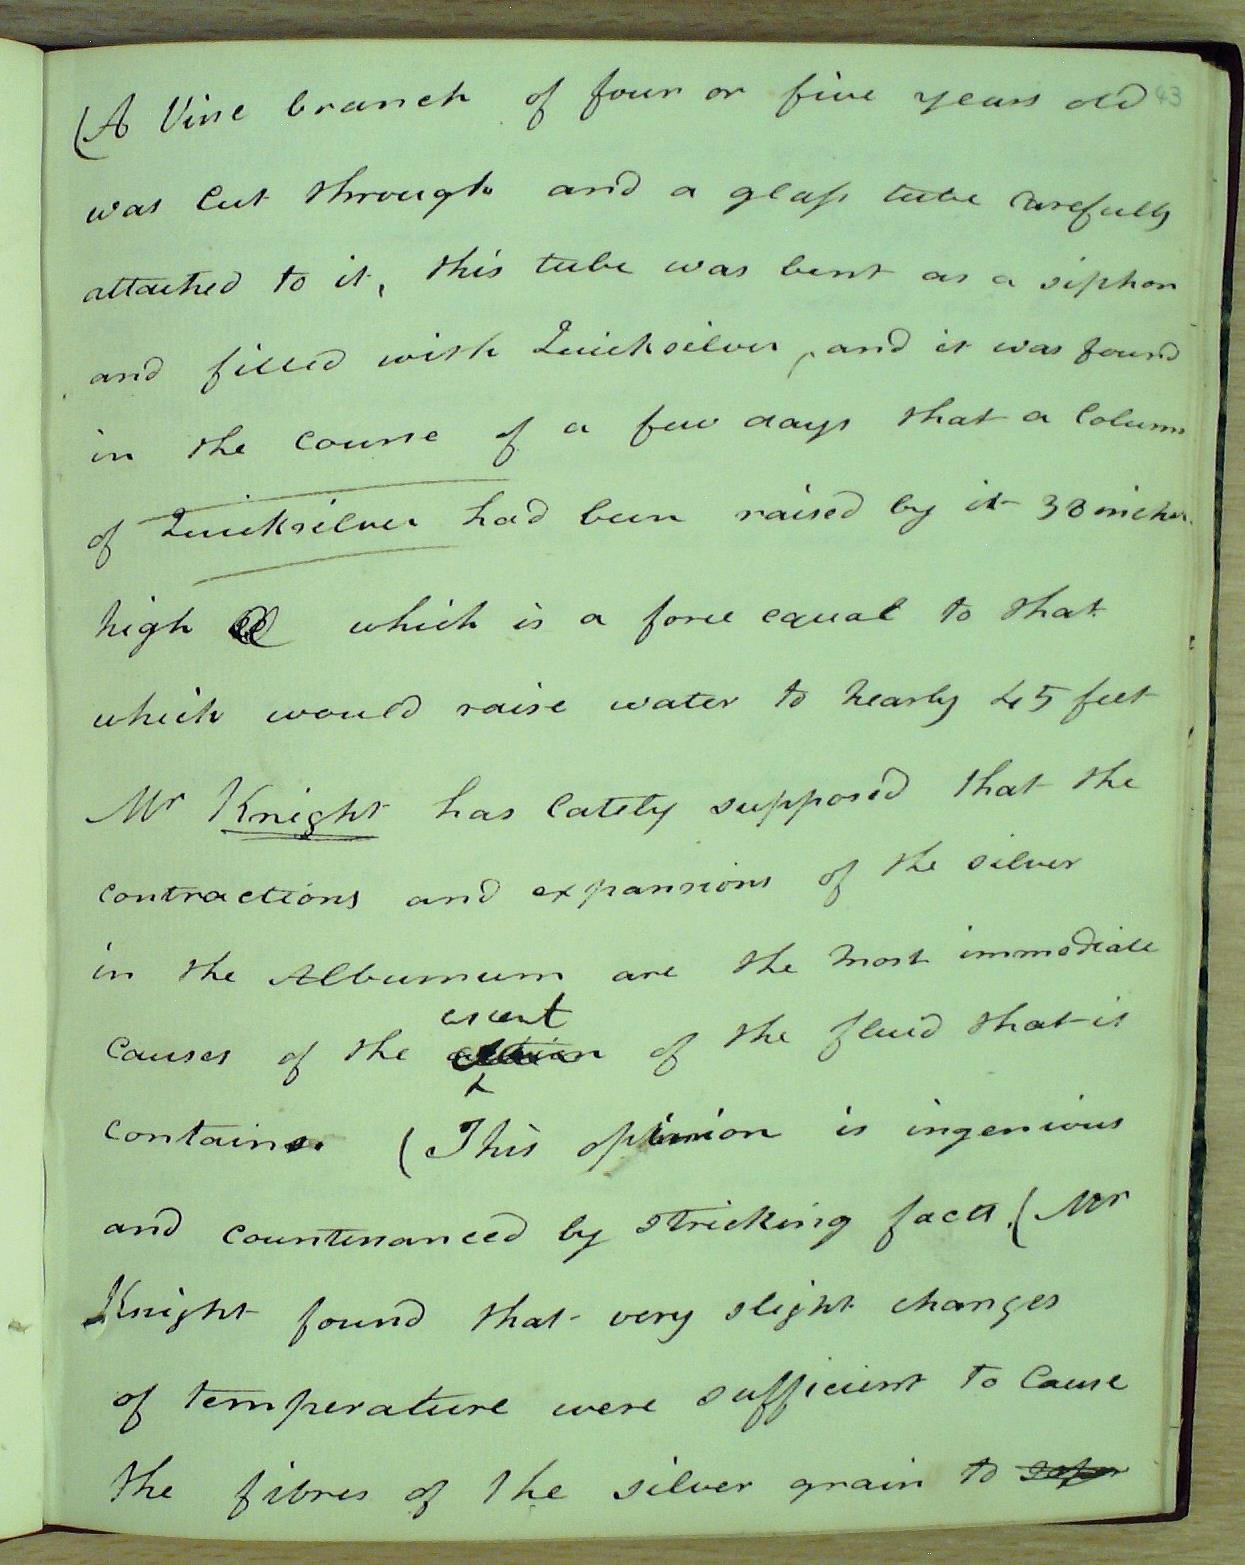 (A Vine branch of four or five years old 43
was Cut through and a glass tube Carefully
attached to it, this tube was bent as a siphon
and filled with Quicksilver, and it was found
in the Course of a few days that a Column
of Quicksilver had been raised by it 38 inches
high which is a force equal to that
which would raise water to nearly 45 feet
Mr Knight has lately supposed that the
contractions and expansions of the silver
in the Alburnum are the most immediate
ascent
Causes of the of the fluid that is
contains. (This opinion is ingenious
and Countenanced by stricking facts. (Mr
Knight found that very slight changes
of temperature were sufficient to Cause
the fibres of the silver grain to